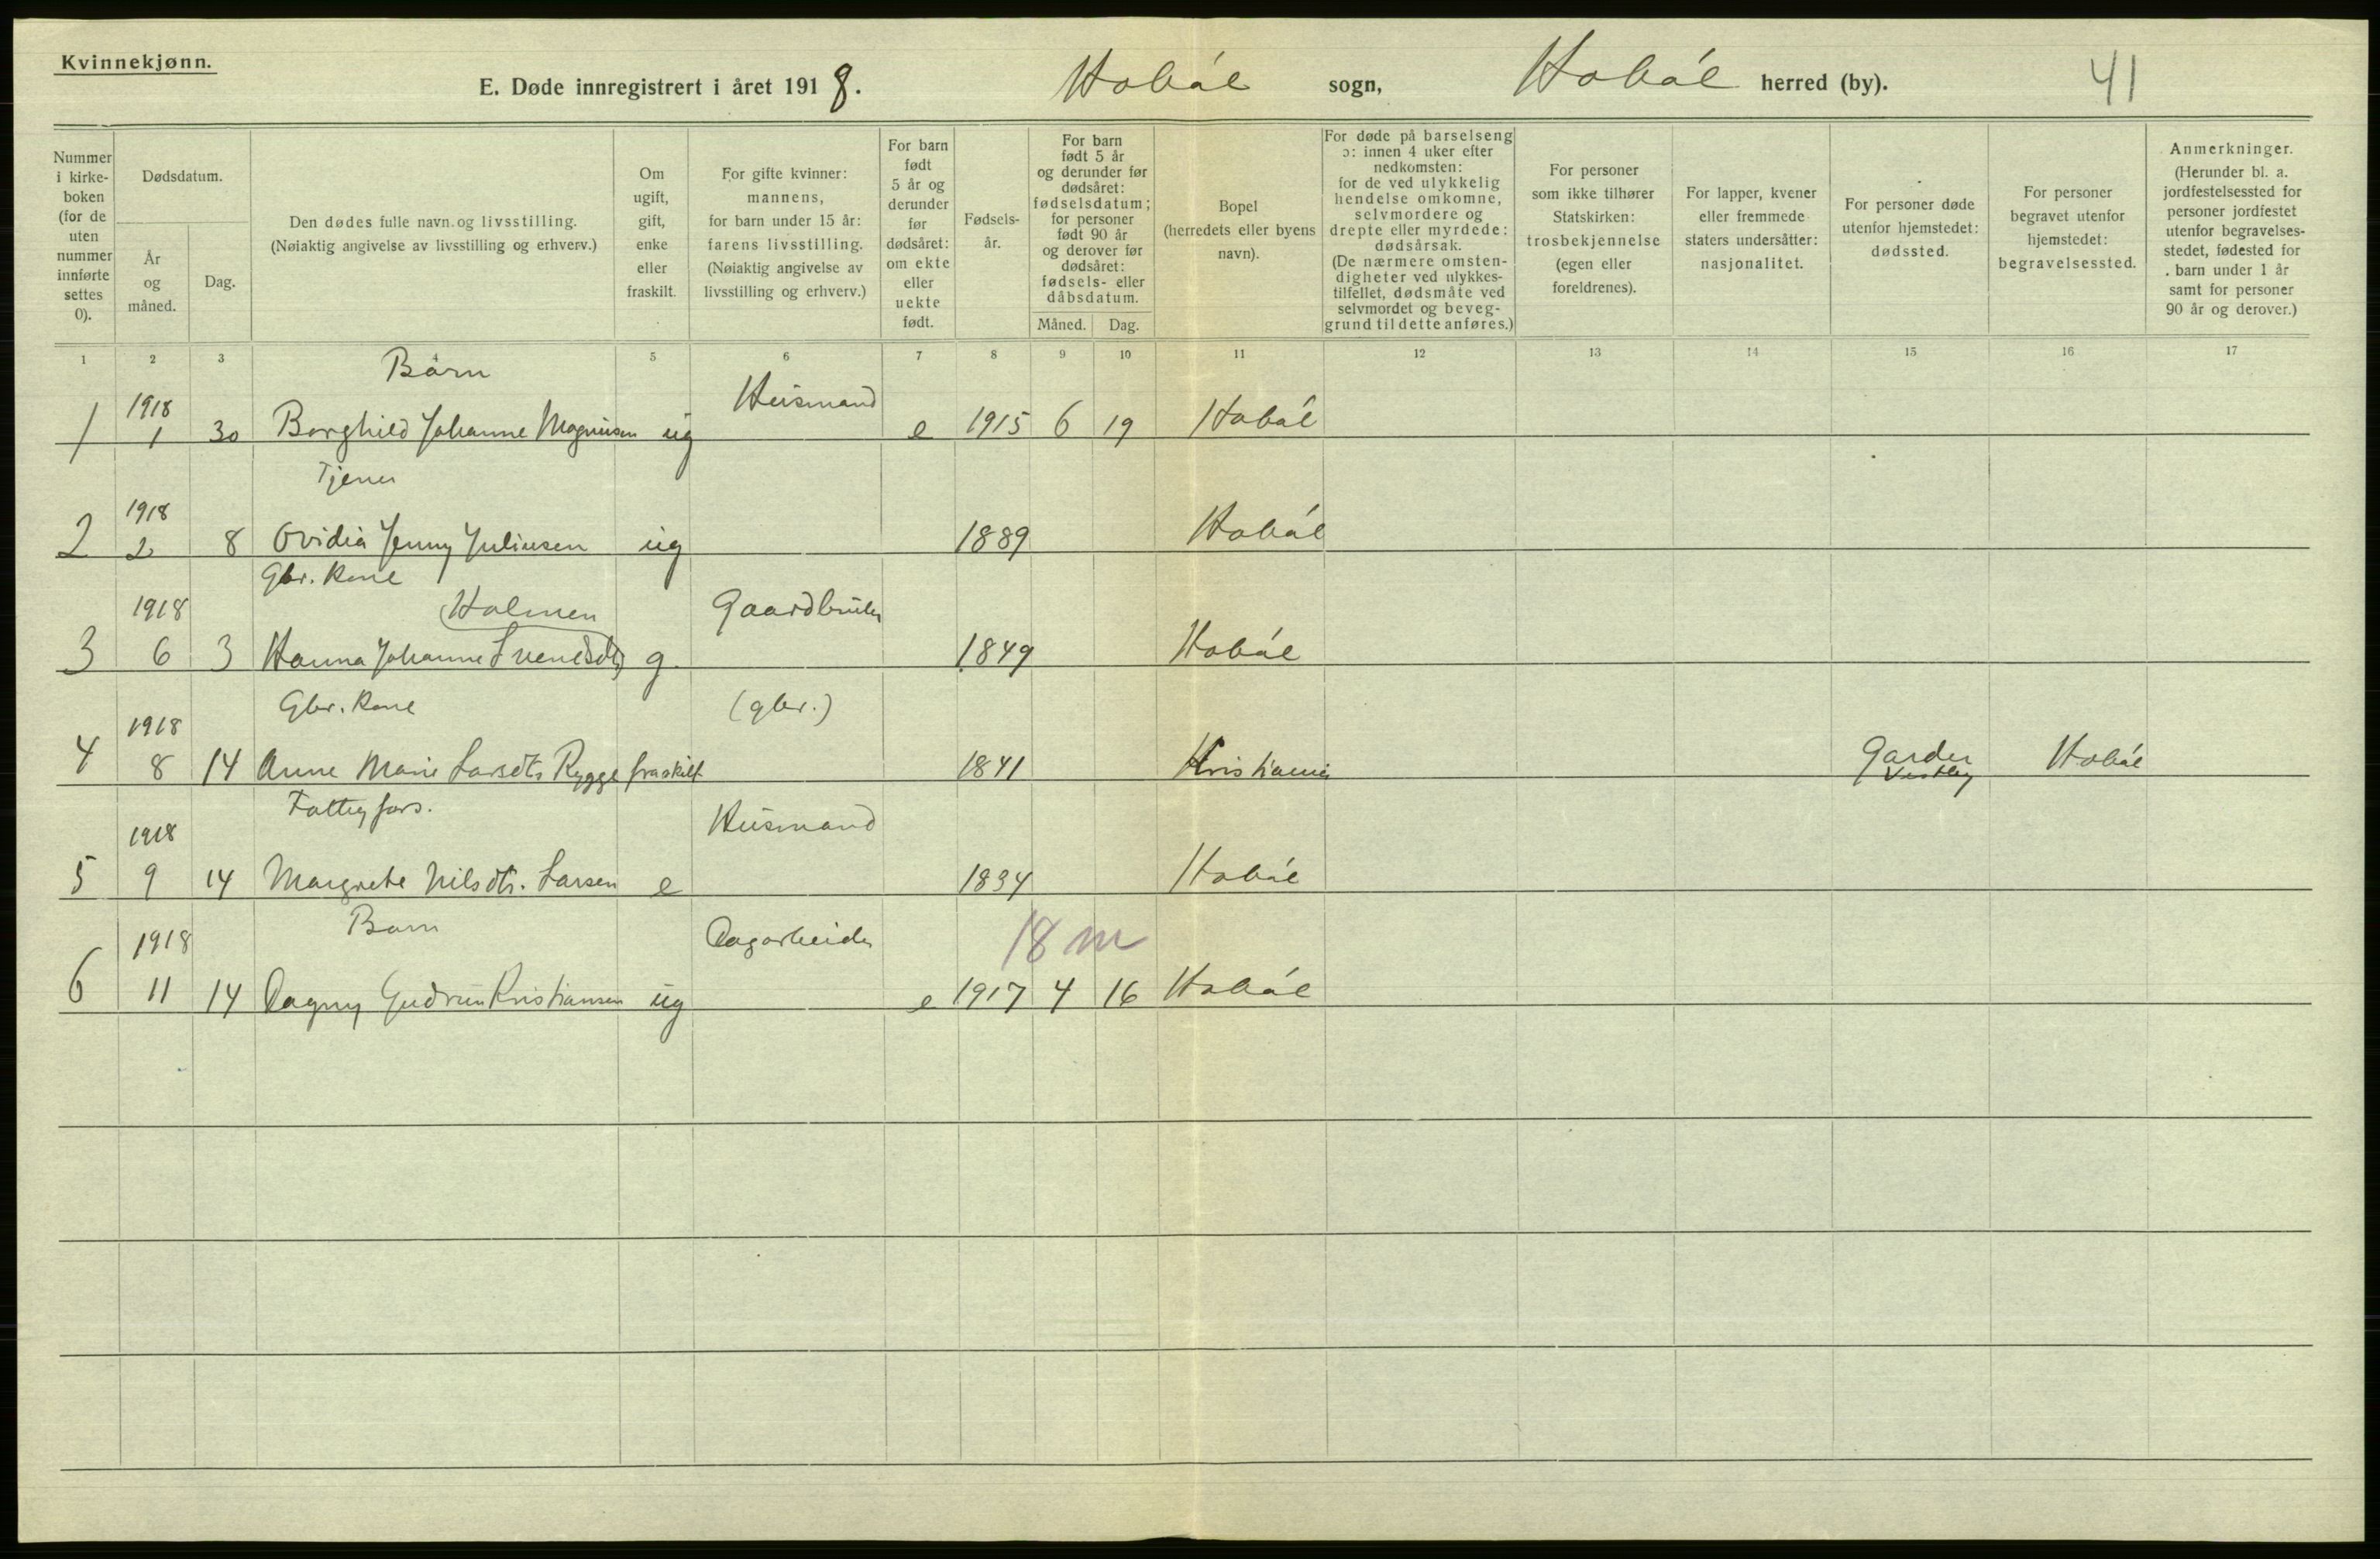 Kvinnekjønn.
E. Døde innregistrert i året 1918. Hobøl sogn, Hobøl herred (by). 41
Nummer i kirkeboken (for de uten nummer innførte settes 0).
Dødsdatum.
År og måned.
Dag.
Den dødes fulle navn og livsstilling.
(Nøiaktig angivelse av livsstilling og erhverv.)
Om ugift, gift, enke eller fraskilt.
For gifte kvinner: mannens, for barn under 15 år: farens livsstilling. (Nøiaktig angivelse av livsstilling og erhverv.)
For barn født 5 år og derunder før dødsåret: om ekte eller uekte født.
Fødselsår.
For barn født 5 år og derunder før dødsåret: fødselsdatum; for personer født 90 år og derover før dødsåret: fødsels- eller dåbsdatum.
Måned. Dag.
Bopel (herredets eller byens navn).
For døde på barselseng ɔ: innen 4 uker efter nedkomsten: for de ved ulykkelig hendelse omkomne, selvmordere og drepte eller myrdede: dødsårsak. (De nærmere omstendigheter ved ulykkestilfellet, dødsmåte ved selvmordet og beveggrund til dette anføres.)
For personer som ikke tilhører Statskirken: trosbekjennelse (egen eller foreldrenes).
For lapper, kvener eller fremmede staters undersåtter: nasjonalitet.
For personer døde utenfor hjemstedet: dødssted.
For personer begravet utenfor hjemstedet: begravelsessted.
Anmerkninger. (Herunder bl. a. jordfestelsessted for personer jordfestet utenfor begravelsesstedet, fødested for barn under 1 år samt for personer 90 år og derover.)
1 2 3 5 6 7 8 9 10 11 12 13 14 15 16 17
Barn
1918 Husmand
1 1 30 Borghild Johanne Magnusen ug e 1915 6 19 Hobøl
Tjener
1918
2 2 8 Ovidia Jenny Juliusen ug 1889 Hobøl
Gbr. Kone
1918 Holmen Gaardbruker
3 6 3 Hanna Johanne Svendsdtr g. 1849 Hobøl
Gbr. Kone (gbr.)
1918
4 8 14 Anne Marie Larsdtr Rygge fraskilt 1841 Kristiania Garder Vestby Hobøl
Fattigfors.
1918 Husmand
5 9 14 Margrete Nilsdtr. Larsen e 1834 Hobøl
Barn
1918 Dagarbeider 18 m
6 11 14 Dagny Gudrun Kristiansen ug e 1917 4 16 Hobøl